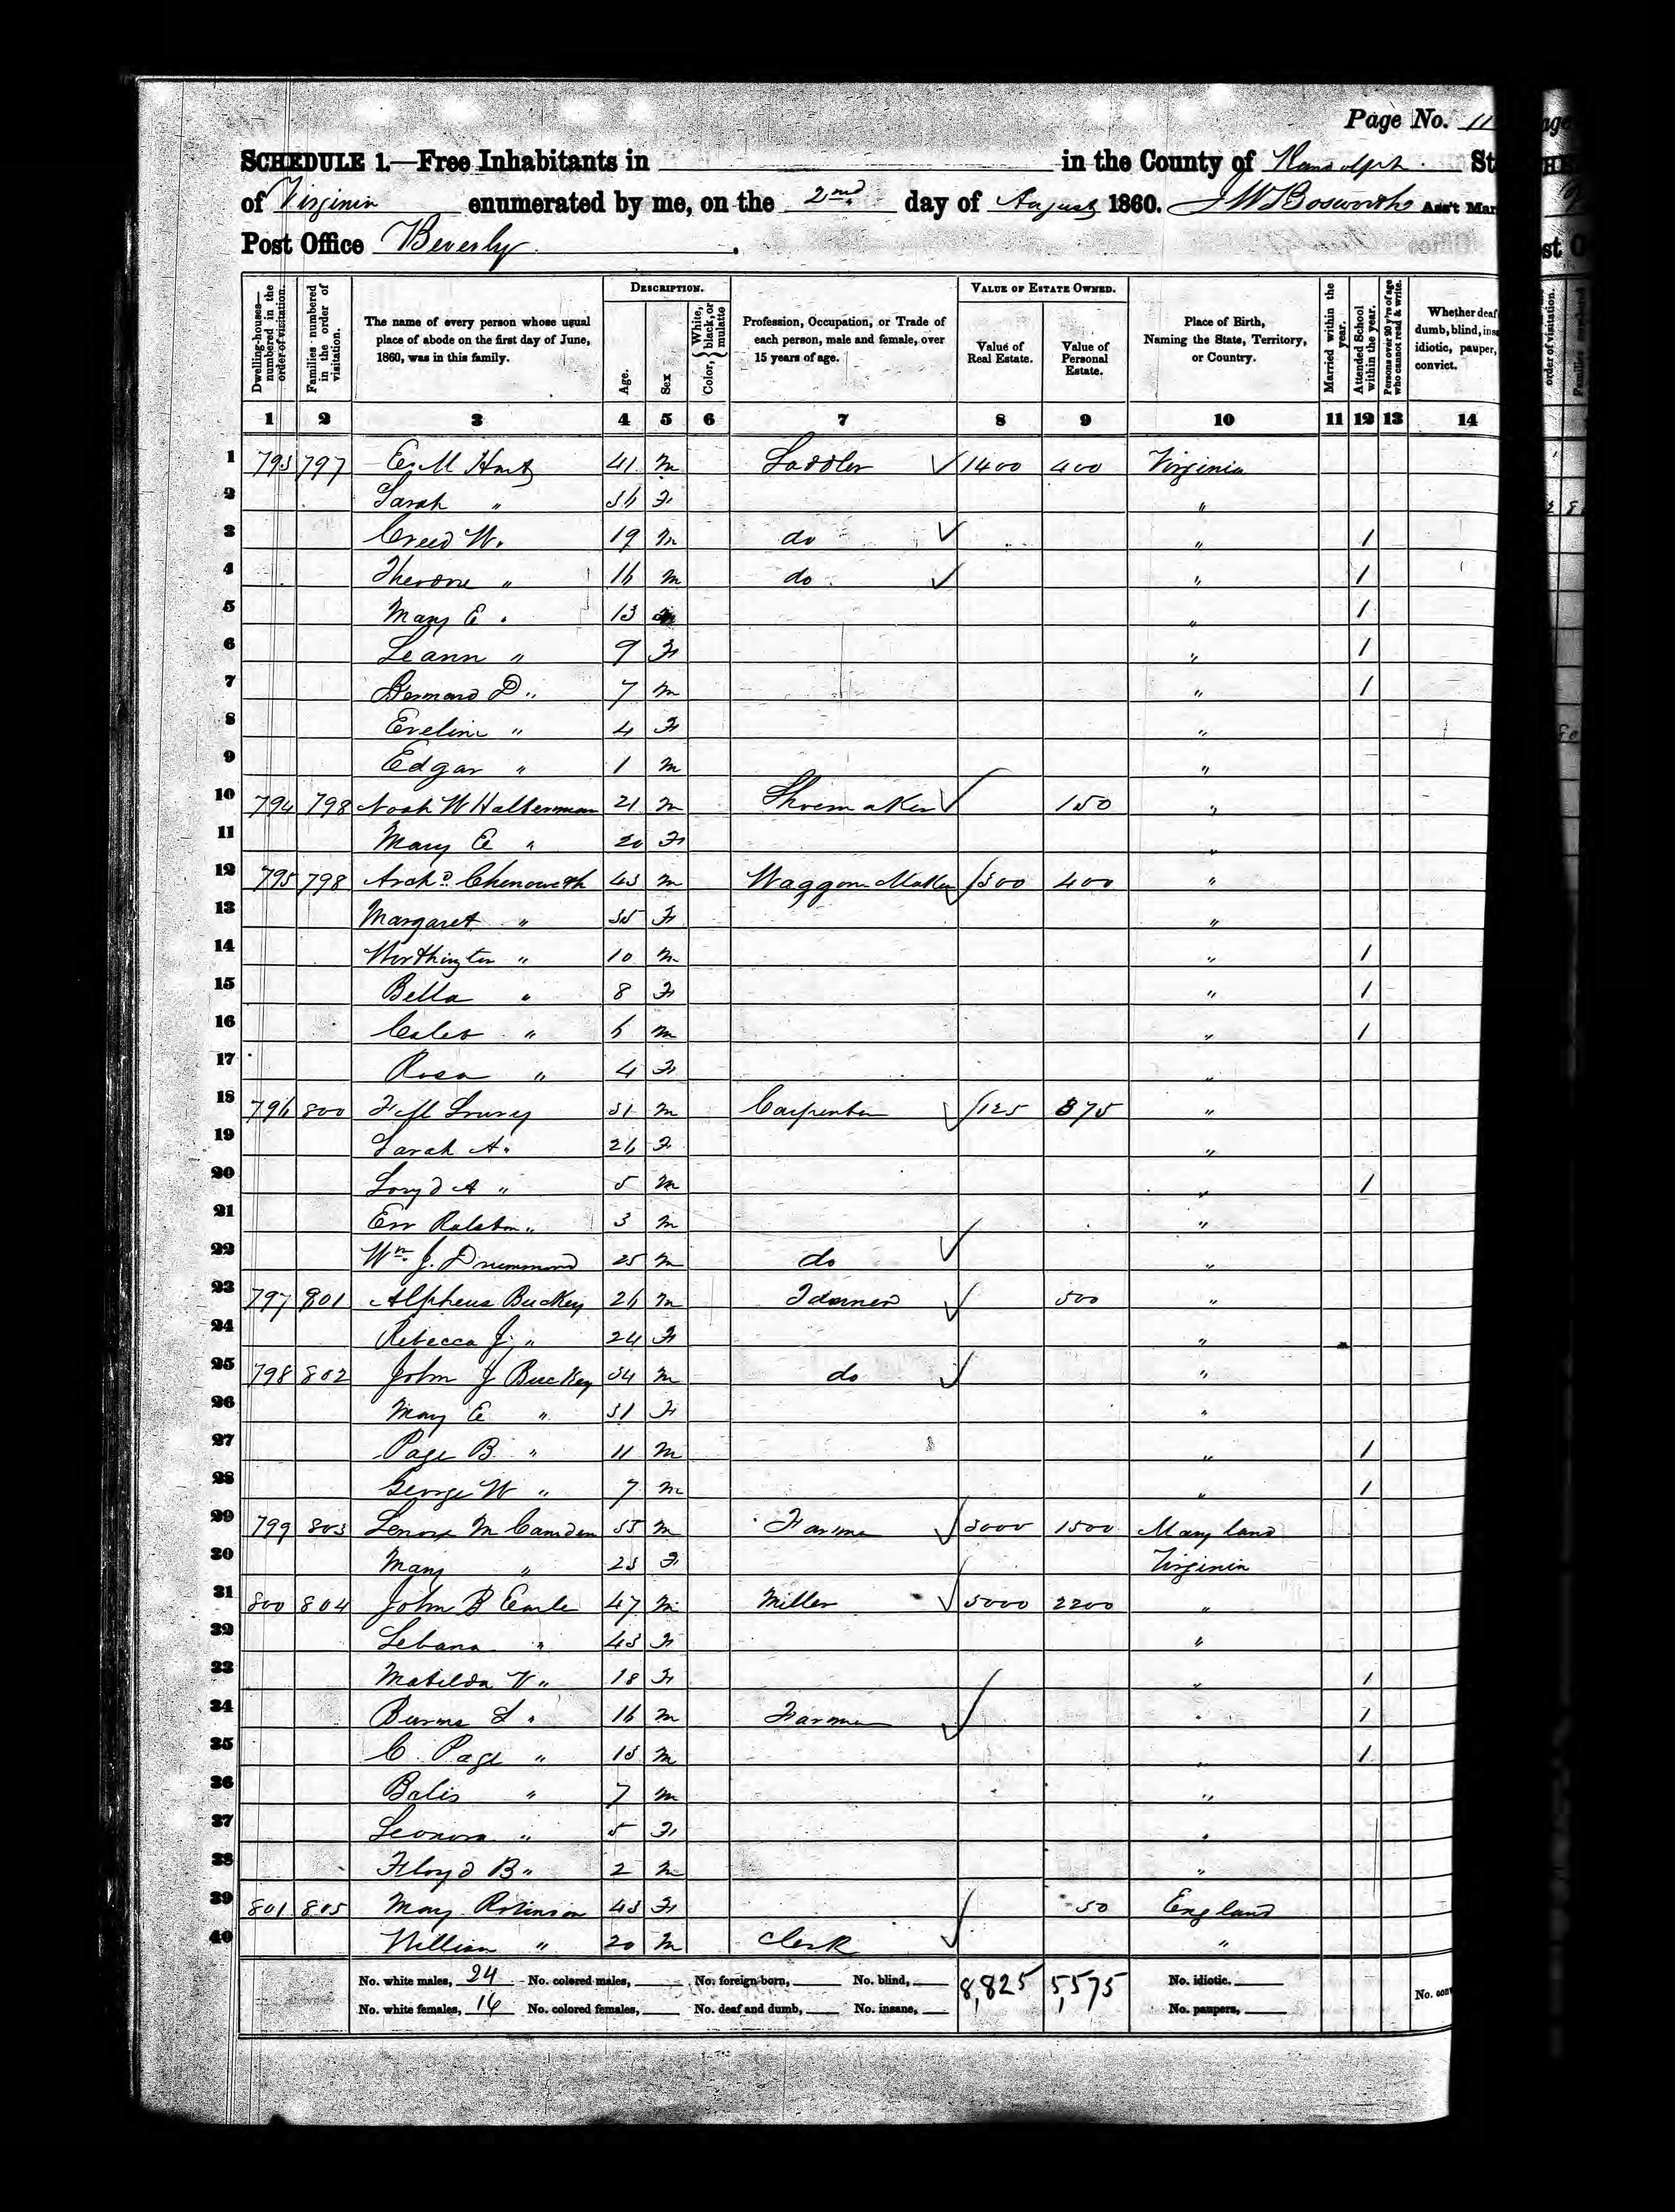 Page No. 11
SCHEDULE 1.—Free Inhabitants in in the County of Randolph St
of Virginia enumerated by me, on the 2nd day of August 1860. J W Bosworth Ass't Mar
Post Office Beverly.
DESCRIPTION. VALUE OF ESTATE OWNED.
Dwelling-houses—numbered in the order of visitation. Families numbered in the order of visitation. The name of every person whose usual place of abode on the first day of June, 1860, was in this family. Age. Sex Color, White, black, or mulatto Profession, Occupation, or Trade of each person, male and female, over 15 years of age. Value of Real Estate. Value of Personal Estate. Place of Birth, Naming the State, Territory, or Country. Married within the year. Attended School within the year. Persons over 20 y'rs of age who cannot read & write. Whether deaf dumb, blind, ins idiotic, pauper, convict.
1 2 3 4 5 6 7 8 9 10 11 12 13 14
1 793 797 E. M Hart 41 m Saddler 1400 400 Virginia
2 Sarah " 36 F "
3 Creed W. 19 m do " 1
4 Therone " 16 m do " 1
5 Mary E " 13 " 1
6 Leann " 9 F " 1
7 Bernard D " 7 m " 1
8 Eveline " 4 F "
9 Edgar " 1 m "
10 794 798 Noah W Halterman 21 m Shoemaker 150 "
11 Mary E " 20 F "
12 795 798 Archd Chenoweth 43 m Waggon Maker 300 400 "
13 Margaret " 35 F "
14 Worthington " 10 m " 1
15 Bella " 8 F " 1
16 Caleb " 6 m " 1
17 Rosa " 4 F "
18 796 800 F M Lowry 31 m Carpenter 125 875 "
19 Sarah A. 26 F "
20 Loyd A " 5 m " 1
21 Err Ralston " 3 m "
22 Wm J. Drummond 25 m do "
23 797 801 Alpheus Buckey 26 m 500 "
24 Rebecca J. " 24 F "
25 798 802 John J Buckey 34 m do "
26 Mary E " 31 F "
27 Page B. " 11 m " 1
28 George W " 7 m " 1
29 799 803 Lenox M Camden 55 m Farmer 3000 1500 Maryland
30 Mary " 23 F Virginia
31 800 804 John B Earle 47 m Miller 5000 2200 "
32 Lebana " 43 F "
33 Matilda V " 18 F " 1
34 Burns L " 16 m Farmer " 1
35 C. Page " 13 m " 1
36 Balis " 7 m "
37 Leonora " 5 F "
38 Floyd B " 2 m "
39 801 805 Mary Robinson 43 F 50 England
40 William " 20 m Clerk "
No. white males, 24 No. colored males, No. foreign born, No. blind, 8,825 5,575 No. idiotic.
No. white females, 16 No. colored females, No. deaf and dumb, No. insane, No. paupers, No. con